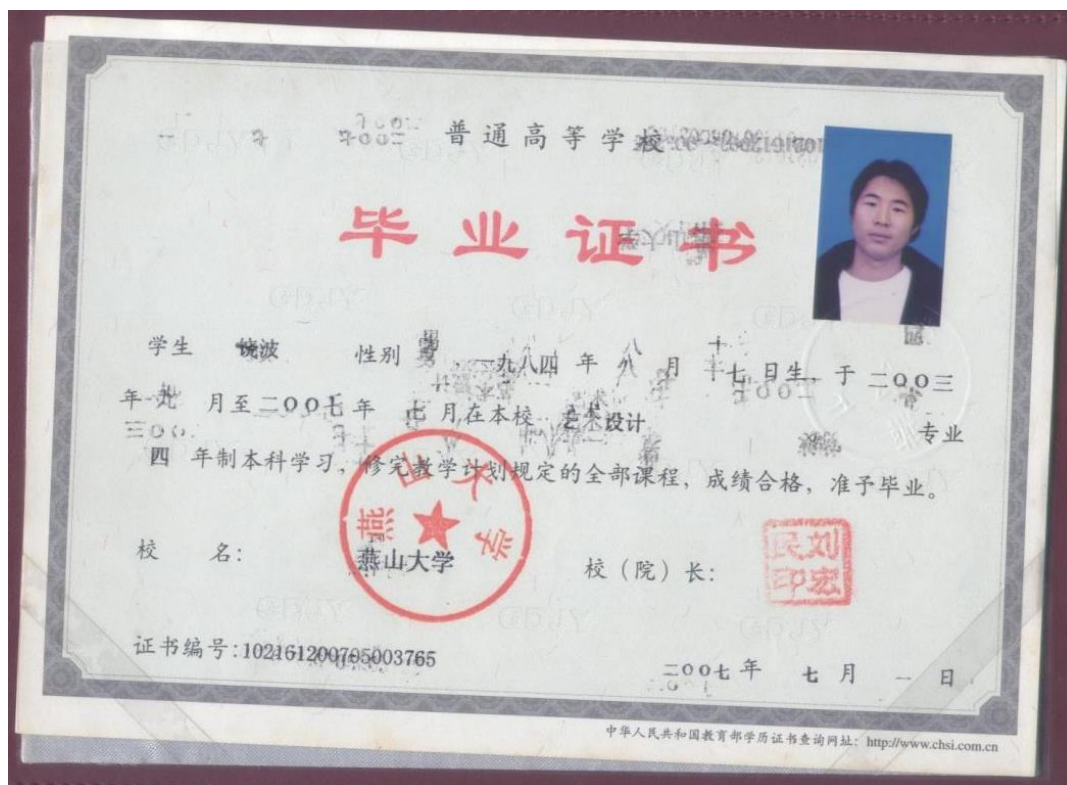 普通高等学校
毕业证书
学生 饶波 性别 男 一九八四 年 八 月 十七 日生 于 二〇〇三
年 九 月至 二〇〇七 年 七 月在本校 艺术设计 专业
四 年制本科学习，修完教学计划规定的全部课程，成绩合格，准予毕业。
燕山大学
校 名： 燕山大学 校（院）长： 刘宏民印
证书编号：102161200705003765
二〇〇七 年 七 月 一 日
中华人民共和国教育部学历证书查询网址：http://www.chsi.com.cn